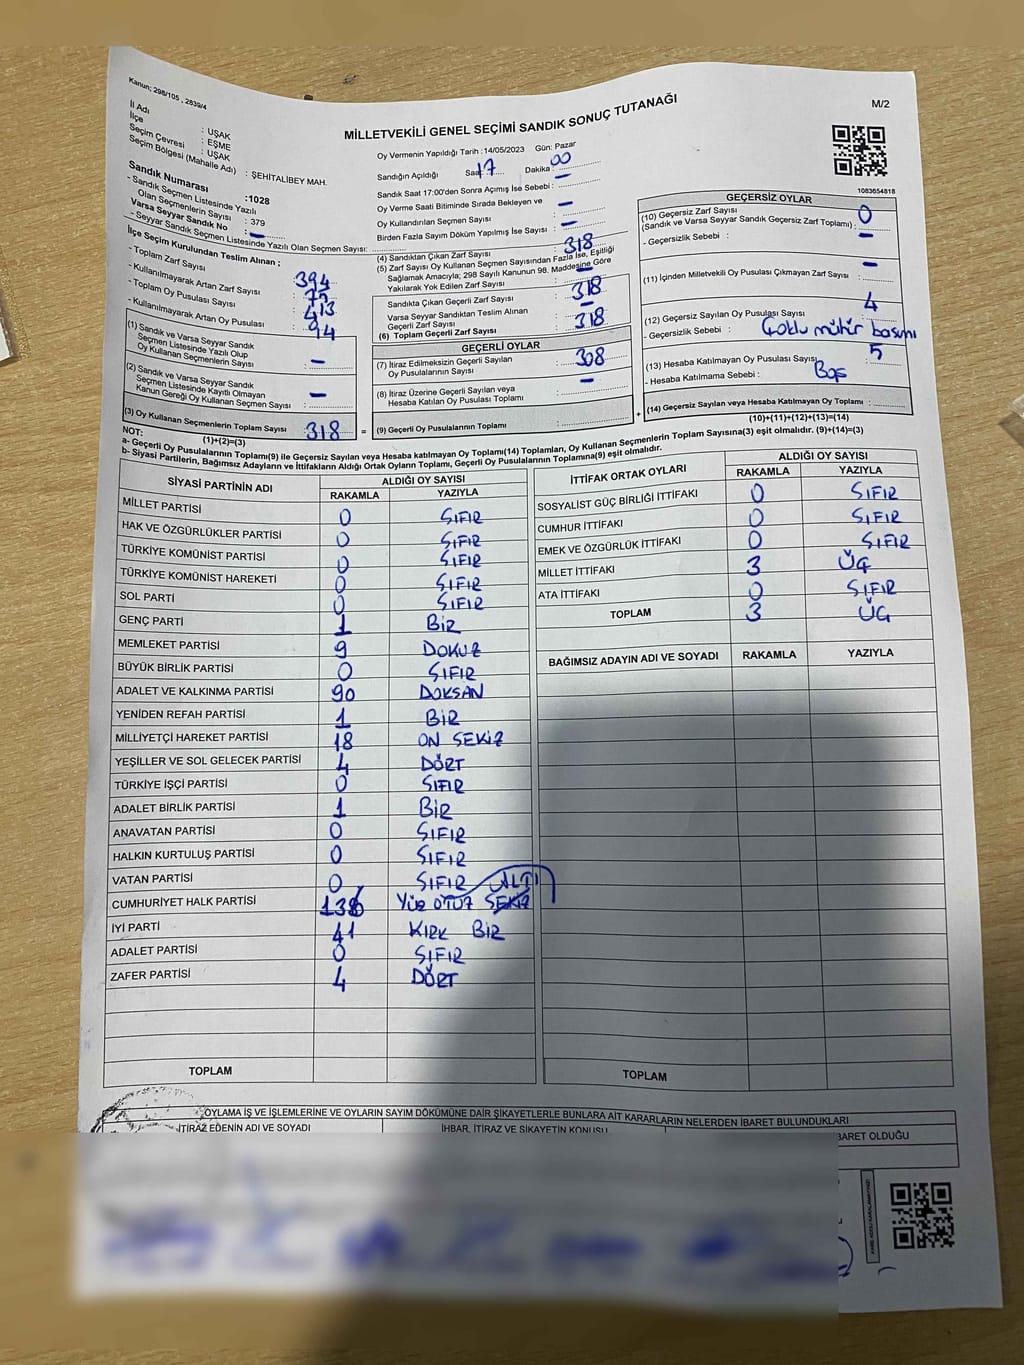 Kanun; 298/105 , 2839/4
M/2
MİLLETVEKİLİ GENEL SEÇİMİ SANDIK SONUÇ TUTANAĞI
İl Adı : UŞAK
İlçe : EŞME
Seçim Çevresi : UŞAK
Seçim Bölgesi (Mahalle Adı) : ŞEHİTALİBEY MAH.
Sandık Numarası :1028
- Sandık Seçmen Listesinde Yazılı
Olan Seçmenlerin Sayısı : 379
Varsa Seyyar Sandık No : –
- Seyyar Sandık Seçmen Listesinde Yazılı Olan Seçmen Sayısı:
İlçe Seçim Kurulundan Teslim Alınan ;
- Toplam Zarf Sayısı : 394
- Kullanılmayarak Artan Zarf Sayısı : 75
- Toplam Oy Pusulası Sayısı : 413
- Kullanılmayarak Artan Oy Pusulası : 94
(1) Sandık ve Varsa Seyyar Sandık
Seçmen Listesinde Yazılı Olup
Oy Kullanan Seçmenlerin Sayısı : –
(2) Sandık ve Varsa Seyyar Sandık
Seçmen Listesinde Kayıtlı Olmayan
Kanun Gereği Oy Kullanan Seçmen Sayısı : –
(3) Oy Kullanan Seçmenlerin Toplam Sayısı : 318 =
(1)+(2)=(3)
Oy Vermenin Yapıldığı Tarih :14/05/2023 Gün: Pazar
Sandığın Açıldığı Saat 17 Dakika : 00
Sandık Saat 17:00'den Sonra Açılmış İse Sebebi : –
Oy Verme Saati Bitiminde Sırada Bekleyen ve
Oy Kullandırılan Seçmen Sayısı : –
Birden Fazla Sayım Döküm Yapılmış İse Sayısı : –
(4) Sandıktan Çıkan Zarf Sayısı : 318
(5) Zarf Sayısı Oy Kullanan Seçmen Sayısından Fazla İse, Eşitliği
Sağlamak Amacıyla; 298 Sayılı Kanunun 98. Maddesine Göre
Yakılarak Yok Edilen Zarf Sayısı : –
Sandıkta Çıkan Geçerli Zarf Sayısı : 318
Varsa Seyyar Sandıktan Teslim Alınan
Geçerli Zarf Sayısı : –
(6) Toplam Geçerli Zarf Sayısı : 318
GEÇERLİ OYLAR
(7) İtiraz Edilmeksizin Geçerli Sayılan
Oy Pusulalarının Sayısı : 308
(8) İtiraz Üzerine Geçerli Sayılan veya
Hesaba Katılan Oy Pusulası Toplamı : –
(9) Geçerli Oy Pusulalarının Toplamı : +
1083654818
GEÇERSİZ OYLAR
(10) Geçersiz Zarf Sayısı
(Sandık ve Varsa Seyyar Sandık Geçersiz Zarf Toplamı) : 0
- Geçersizlik Sebebi : –
(11) İçinden Milletvekili Oy Pusulası Çıkmayan Zarf Sayısı : –
(12) Geçersiz Sayılan Oy Pusulası Sayısı : 4
- Geçersizlik Sebebi : Çoklu mühür basımı
(13) Hesaba Katılmayan Oy Pusulası Sayısı : 5
- Hesaba Katılmama Sebebi : Boş
(14) Geçersiz Sayılan veya Hesaba Katılmayan Oy Toplamı :
(10)+(11)+(12)+(13)=(14)
NOT:
a- Geçerli Oy Pusulalarının Toplamı(9) ile Geçersiz Sayılan veya Hesaba katılmayan Oy Toplamı(14) Toplamları, Oy Kullanan Seçmenlerin Toplam Sayısına(3) eşit olmalıdır. (9)+(14)=(3)
b- Siyasi Partilerin, Bağımsız Adayların ve İttifakların Aldığı Ortak Oyların Toplamı, Geçerli Oy Pusulalarının Toplamına(9) eşit olmalıdır.
SİYASİ PARTİNİN ADI ALDIĞI OY SAYISI
RAKAMLA YAZIYLA
MİLLET PARTİSİ 0 SIFIR
HAK VE ÖZGÜRLÜKLER PARTİSİ 0 SIFIR
TÜRKİYE KOMÜNİST PARTİSİ 0 SIFIR
TÜRKİYE KOMÜNİST HAREKETİ 0 SIFIR
SOL PARTİ 0 SIFIR
GENÇ PARTİ 1 BİR
MEMLEKET PARTİSİ 9 DOKUZ
BÜYÜK BİRLİK PARTİSİ 0 SIFIR
ADALET VE KALKINMA PARTİSİ 90 DOKSAN
YENİDEN REFAH PARTİSİ 1 BİR
MİLLİYETÇİ HAREKET PARTİSİ 18 ON SEKİZ
YEŞİLLER VE SOL GELECEK PARTİSİ 4 DÖRT
TÜRKİYE İŞÇİ PARTİSİ 0 SIFIR
ADALET BİRLİK PARTİSİ 1 BİR
ANAVATAN PARTİSİ 0 SIFIR
HALKIN KURTULUŞ PARTİSİ 0 SIFIR
VATAN PARTİSİ 0 SIFIR
CUMHURİYET HALK PARTİSİ 136 YÜZ OTUZ SEKİZ ALTI
İYİ PARTİ 41 KIRK BİR
ADALET PARTİSİ 0 SIFIR
ZAFER PARTİSİ 4 DÖRT
TOPLAM
İTTİFAK ORTAK OYLARI ALDIĞI OY SAYISI
RAKAMLA YAZIYLA
SOSYALİST GÜÇ BİRLİĞİ İTTİFAKI 0 SIFIR
CUMHUR İTTİFAKI 0 SIFIR
EMEK VE ÖZGÜRLÜK İTTİFAKI 0 SIFIR
MİLLET İTTİFAKI 3 ÜÇ
ATA İTTİFAKI 0 SIFIR
TOPLAM 3 ÜÇ
BAĞIMSIZ ADAYIN ADI VE SOYADI RAKAMLA YAZIYLA
TOPLAM
OYLAMA İŞ VE İŞLEMLERİNE VE OYLARIN SAYIM DÖKÜMÜNE DAİR ŞİKAYETLERLE BUNLARA AİT KARARLARIN NELERDEN İBARET BULUNDUKLARI
İTİRAZ EDENİN ADI VE SOYADI İHBAR, İTİRAZ VE ŞİKAYETİN KONUSU BARET OLDUĞU